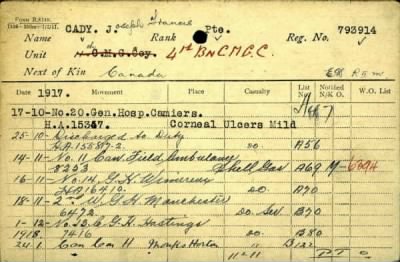 CADY. J. oseph Francis
Name Rank Pte. Reg. No. 793914
Unit C.M.G.Coy. 4th Bn C.M.G.C.
Next of Kin Canada
Date 1917. Movement Casualty List No. Notified N/K O. W.O. List
17-10-No.20.Gen.Hosp.Camiers.
H.A.15347. Corneal Ulcers Mild
25-10- Discharged to Duty
HA.15587.2. do. A56
14-11- No. 11 Can. Field Ambulance
8293 Shell Gas A69 M-6894
16-11- No. 14. G.H. Wimereux
HA 16410. do. A70
18-11- 2nd W.G.H Manchester
6472. do Sev B70
1-12- G.H. Hastings
1918. 7416 do. B80
24.1 Can Con H Monks Horton B